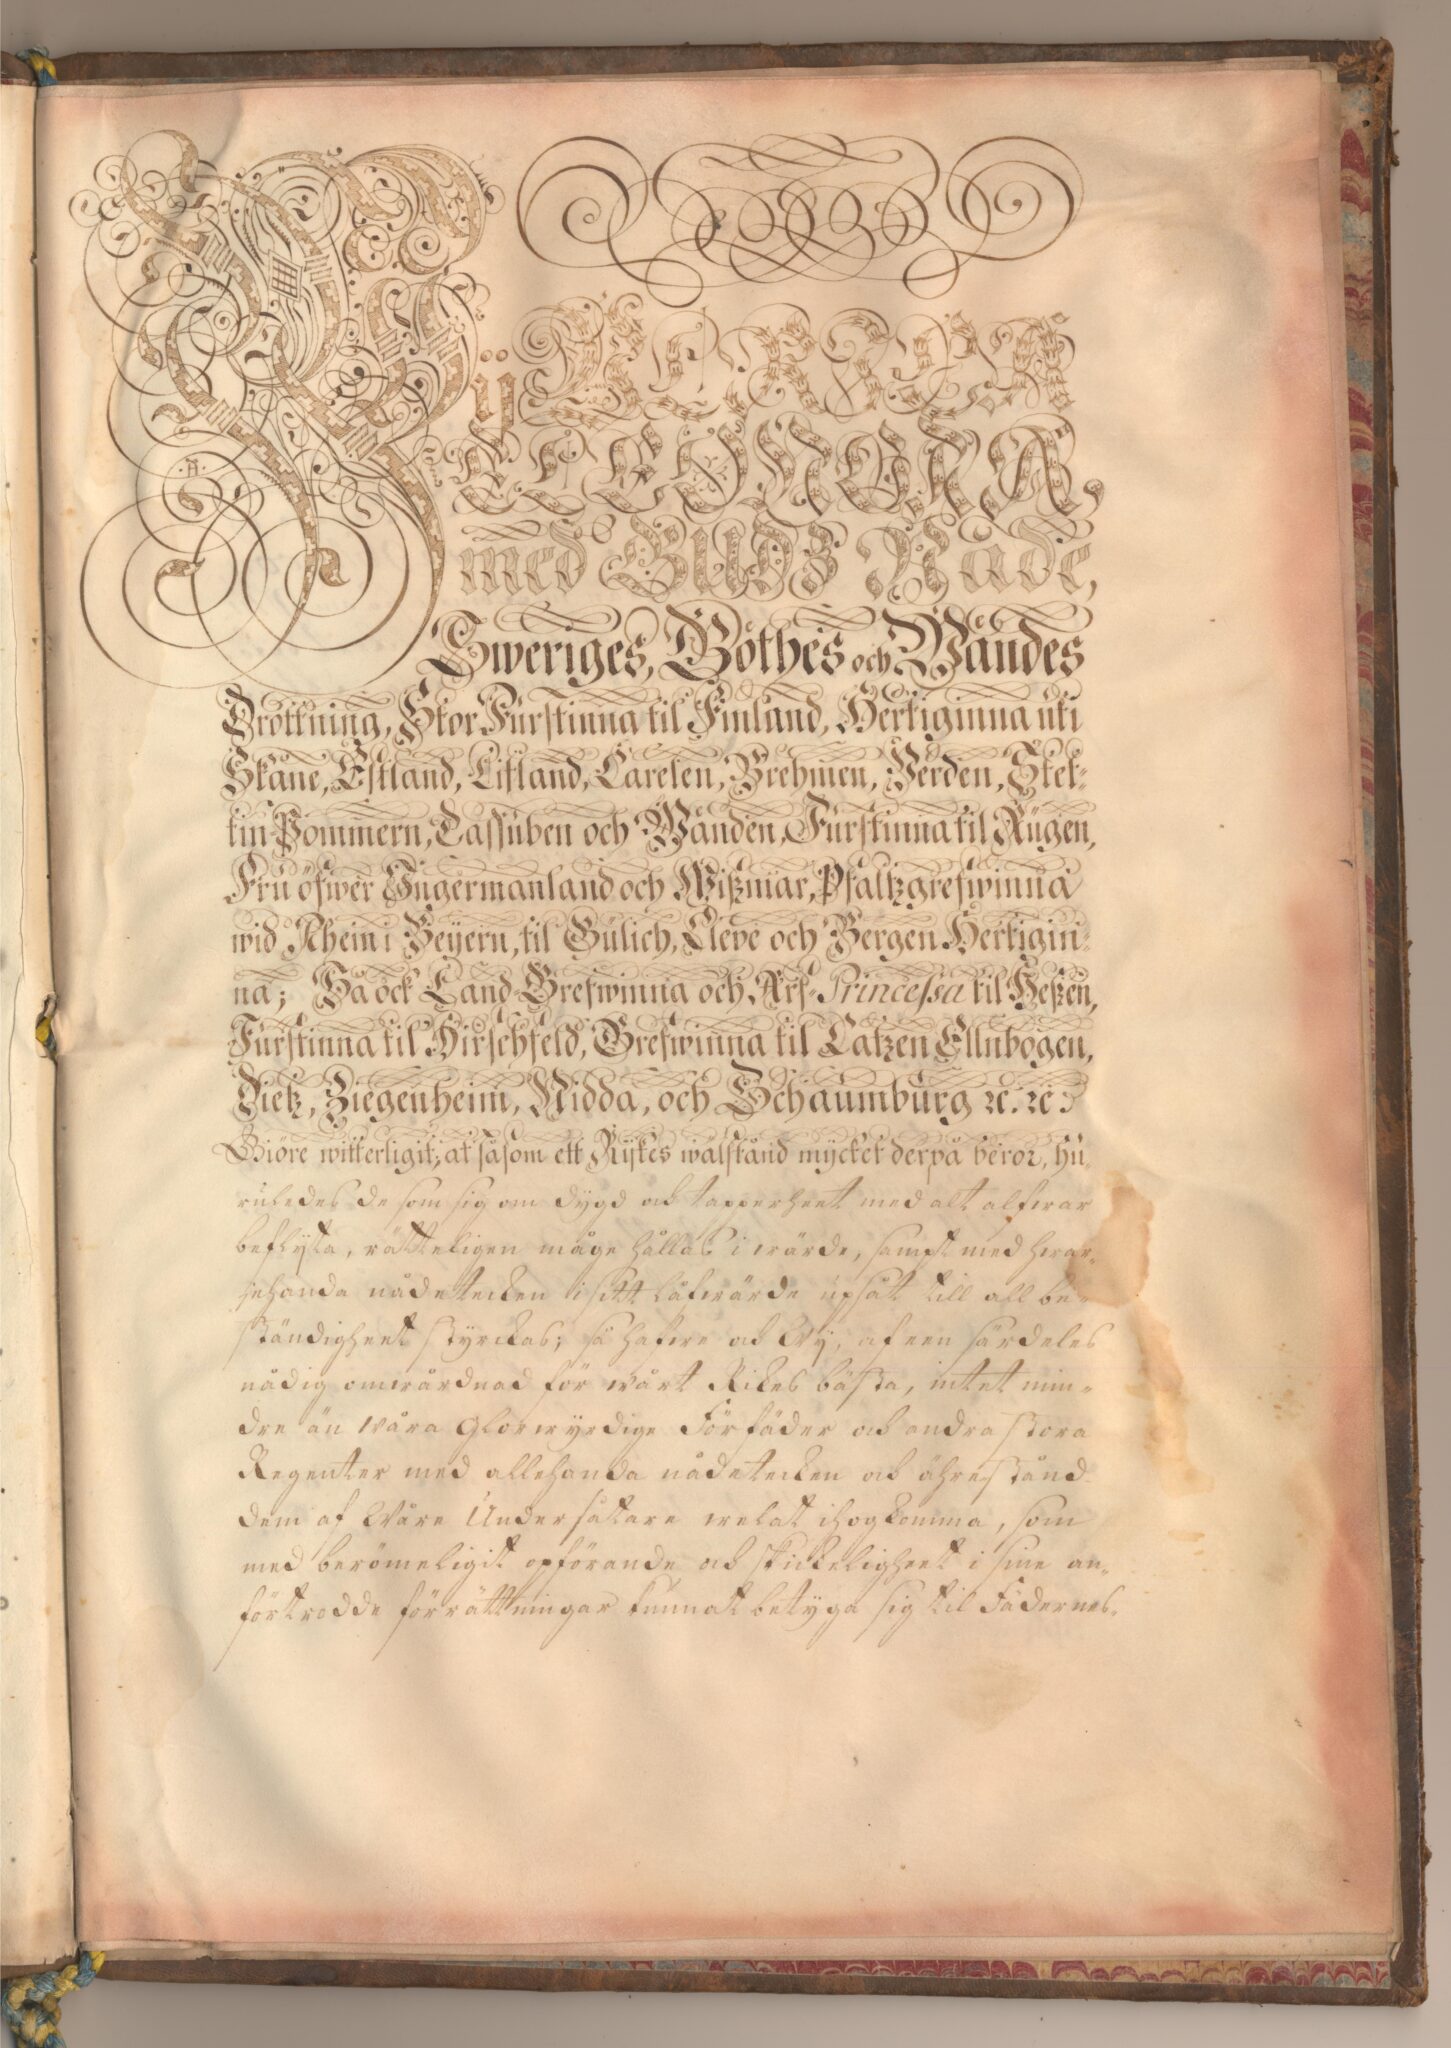 Wÿ ULRICA
ELEONORA,
med Gudz Nåde,
Sweriges, Göthes och Wändes
Drottning, Stor Fürstinna til Finland, Hertiginna uti
Skåne, Estland, Lifland, Carelen, Brehmen, Verden, Stet-
tin Pommern, Cassuben och Wänden, Fürstinna til Rügen,
Fru öfwer Ingermanland och Wißmar, Pfaltzgrefwinna
wid Rhein i Beyern, til Gülich, Cleve och Bergen Hertigin-
na; Så ock Land-Grefwinna och Arf-Princessa til Heßen,
Fürstinna til Hirschfeld, Grefwinna til Catzen Ellnbogen,
Dietz, Ziegenheim, Nidda, och Schaumburg etc. etc.
Giöre witterligit; at såsom ett Rijkes wälstånd mycket derpå beror, hu-
ruledes de som sig om dygd och tapperheet med alt alfwar
beflyta, rätteligen måge hållas i wärde, sampt med hwar-
jehanda nådetecken i sitt låfwärde upsåt till all be-
ständigheet styrckas; så hafwe och Wij, af een särdeles
nådig omwårdnad för wårt Rikes bästa, intet min-
dre än Wåra Glorwyrdige Förfäder och andra stora
Regenter med allehanda nådetecken och ähreständ
dem af Wåre Undersåtare welat ihogkomma, som
med berömeligit opförande och skickeligheet i sine an-
förtrodde förrättningar kunnat betyga sig til Fädernes-